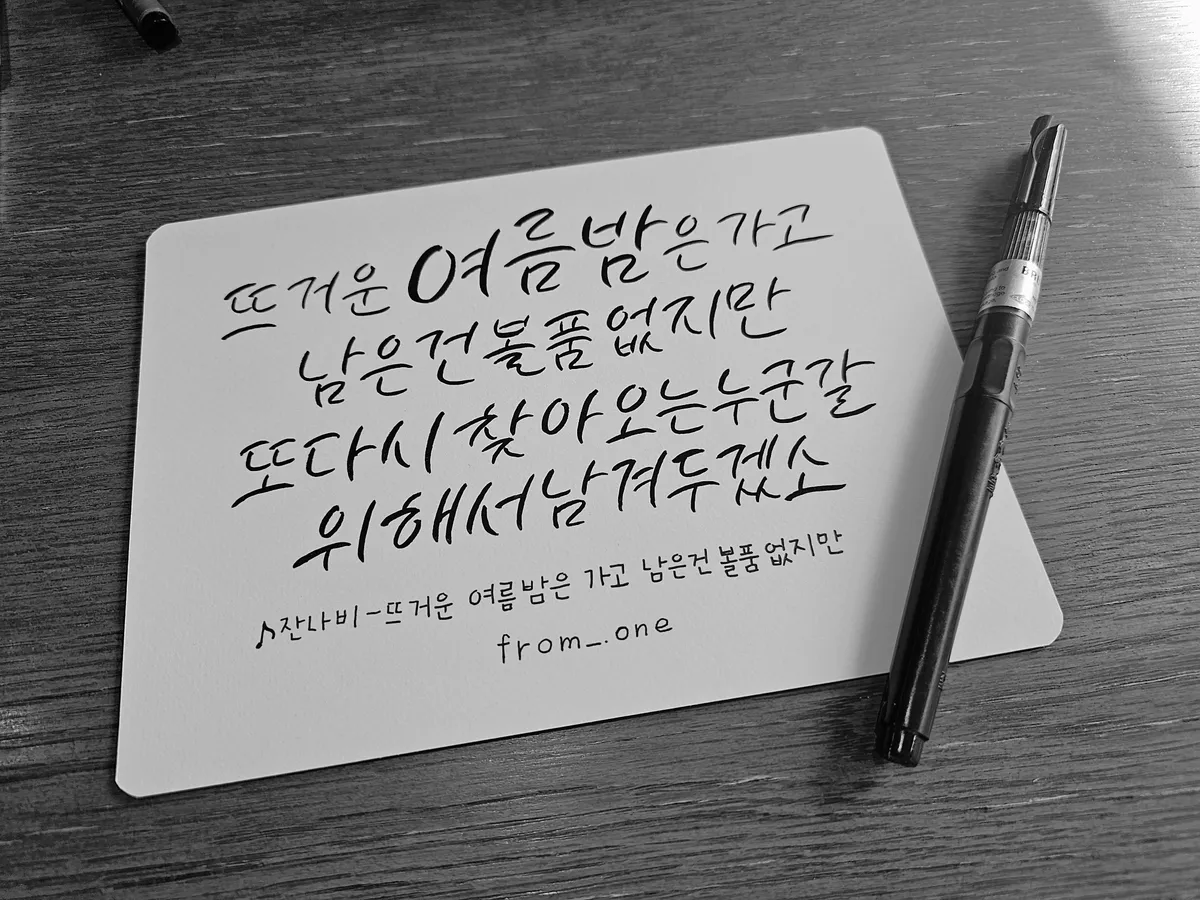 뜨거운 여름밤은 가고
남은건 볼품없지만
또다시 찾아오는 누군갈
위해서 남겨두겠소
♪잔나비-뜨거운 여름밤은 가고 남은건 볼품없지만
from_.one